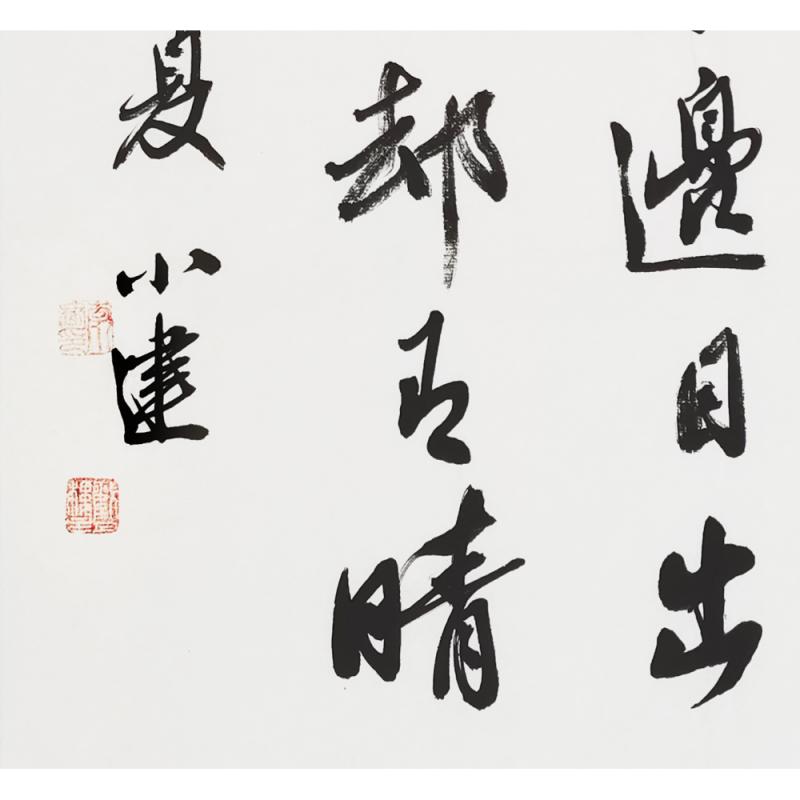 邊日出
却有晴
夏 小建